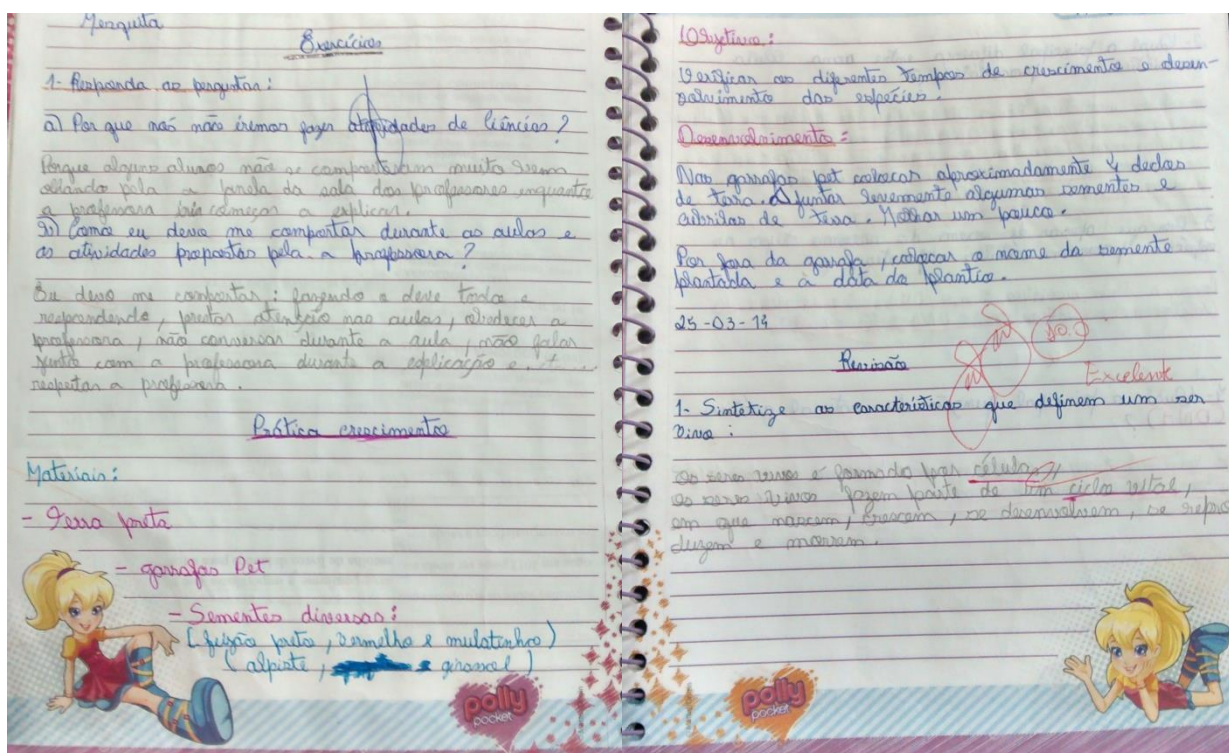 Mesquita
Exercícios
1- Responda as perguntas:
a) Por que nós não iremos fazer atividades de Ciências?
Porque alguns alunos não se comportaram muito bem
olhando pela a janela da sala dos professores enquanto
a professora iria começar a explicar.
Como eu devo me comportar durante as aulas e
as atividades propostas pela a professora?
Eu devo me comportar: fazendo o deve todo e
respondendo, prestar atenção nas aulas, obedecer a
professora, não conversar durante a aula, não falar
junto com a professora durante a explicação e
respeitar a professora.
Prática crescimento
Materiais:
- Terra preta
- garrafas Pet
- Sementes diversas:
(feijão preto, vermelho e mulatinho)
(alpiste, girassol)
polly
pocket
Objetivo:
Verificar os diferentes tempos de crescimento e desen-
volvimento das espécies.
Desenvolvimento:
Nas garrafas pet colocar aproximadamente 4 dedos
de terra. Afuntar levemente algumas sementes e
cubrilas de terra. Molhar um pouco.
Por fora da garrafa, colocar o nome da semente
plantabla e a data do plantio.
25-03-14
10.0
Revisão
Excelente
1- Sintetize as características que definem um ser
vivo:
Os seres vivos é formado por célula,
os seres vivos fazem parte de um ciclo vital,
em que nascem, crescem, se desenvolvem, se repro
duzem e morrem.
polly
pocket